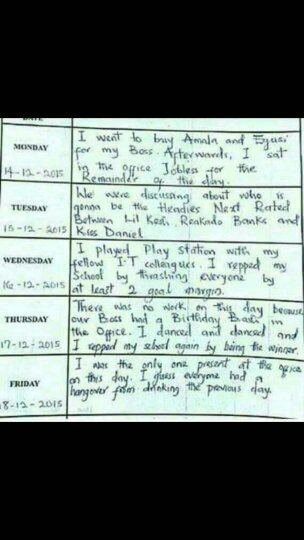 DATE
MONDAY
14-12-2015
I went to buy Amala and Egusi
for my Boss. Afterwards, I sat
in the office Jobless for the
Remainder of the day.
TUESDAY
15-12-2015
We were discussing about who is
gonna be the Headies Next Rated
Between Lil Kesh, Reakado Banks and
Kiss Daniel
WEDNESDAY
16-12-2015
I played Play station with my
fellow I.T colleagues. I repped my
School by thrashing everyone by
at least 2 goal margin.
THURSDAY
17-12-2015
There was no work on this day because
our Boss had a Birthday Bash in
the Office. I danced and danced and
I repped my school again by being the winner.
FRIDAY
18-12-2015
I was the only one present at the office
on this day. I guess everyone had a
hangover from drinking the previous day.